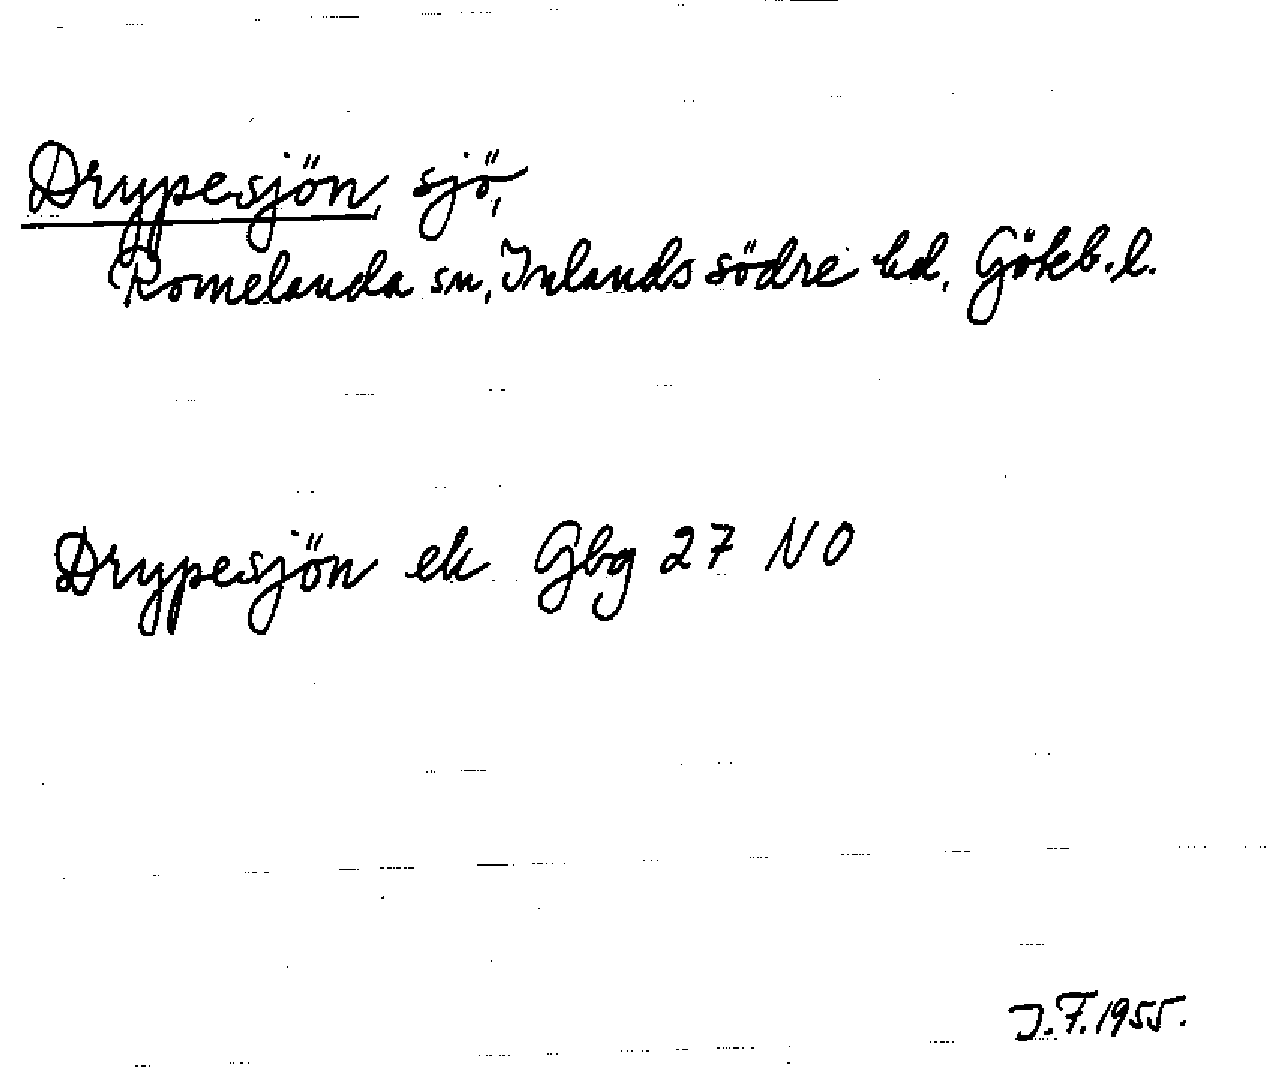 Drypesjön, sjö,
Romelanda sn, Inlands södre hd, Gökb. l.
Drypesjön ek Gbg 27 NO
J.F. 1955.